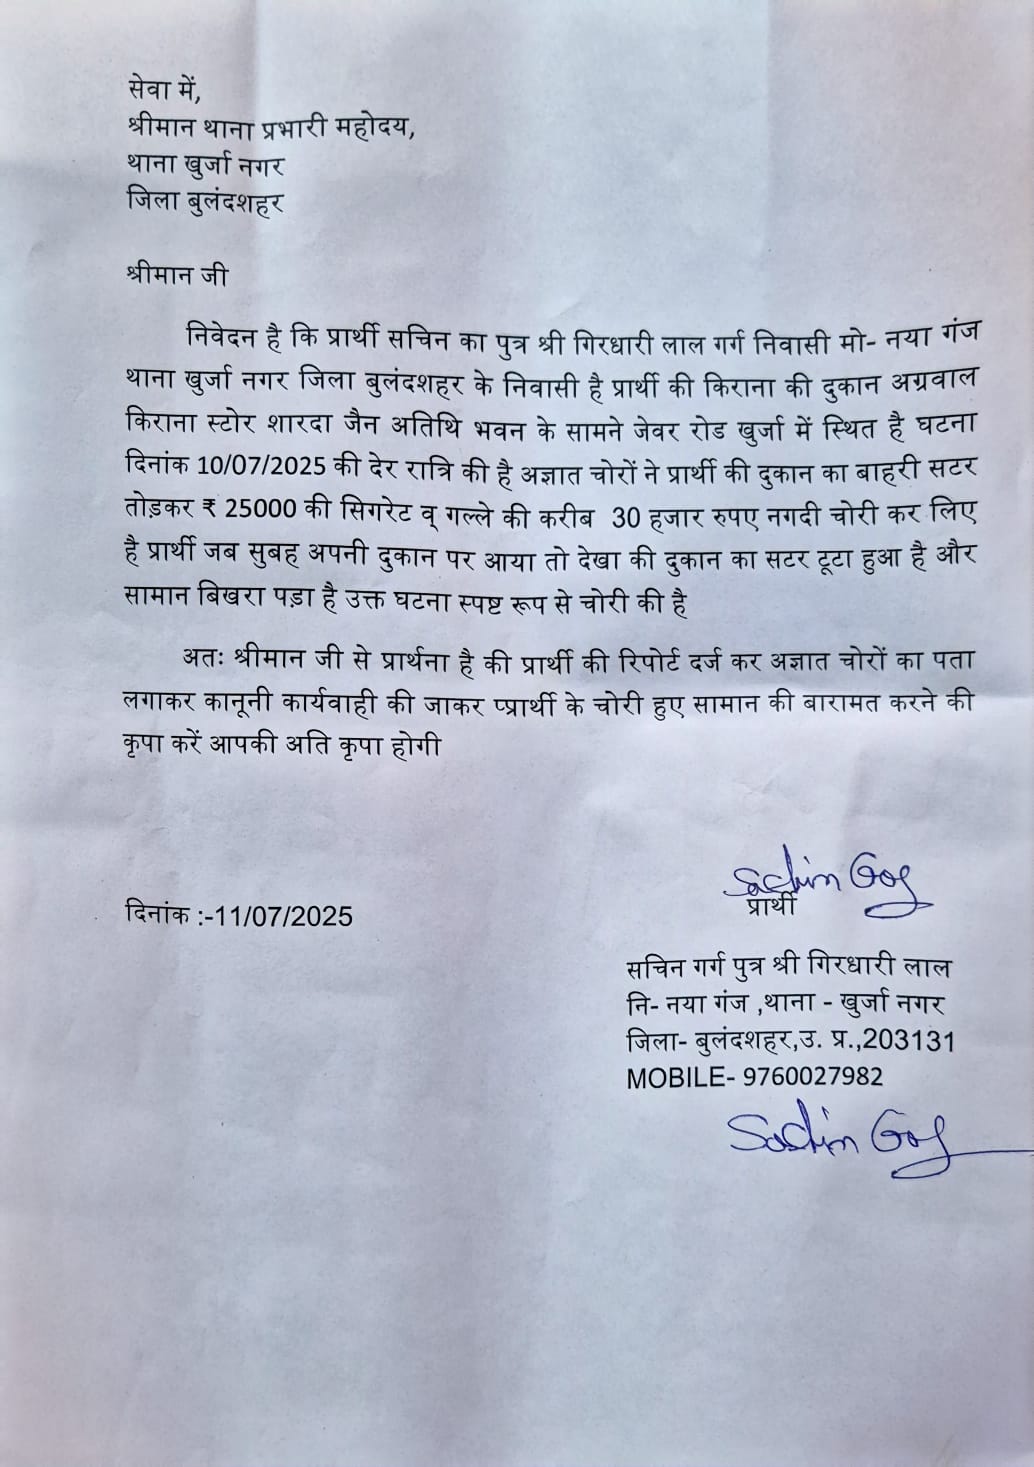 सेवा में,
श्रीमान थाना प्रभारी महोदय,
थाना खुर्जा नगर
जिला बुलंदशहर
श्रीमान जी
निवेदन है कि प्रार्थी सचिन का पुत्र श्री गिरधारी लाल गर्ग निवासी मो- नया गंज
थाना खुर्जा नगर जिला बुलंदशहर के निवासी है प्रार्थी की किराना की दुकान अग्रवाल
किराना स्टोर शारदा जैन अतिथि भवन के सामने जेवर रोड खुर्जा में स्थित है घटना
दिनांक 10/07/2025 की देर रात्रि की है अज्ञात चोरों ने प्रार्थी की दुकान का बाहरी सटर
तोड़कर ₹ 25000 की सिगरेट व् गल्ले की करीब 30 हजार रुपए नगदी चोरी कर लिए
है प्रार्थी जब सुबह अपनी दुकान पर आया तो देखा की दुकान का सटर टूटा हुआ है और
सामान बिखरा पड़ा है उक्त घटना स्पष्ट रूप से चोरी की है
अतः श्रीमान जी से प्रार्थना है की प्रार्थी की रिपोर्ट दर्ज कर अज्ञात चोरों का पता
लगाकर कानूनी कार्यवाही की जाकर प्प्रार्थी के चोरी हुए सामान की बारामत करने की
कृपा करें आपकी अति कृपा होगी
Sachin Gog
प्रार्थी
दिनांक :-11/07/2025
सचिन गर्ग पुत्र श्री गिरधारी लाल
नि- नया गंज ,थाना - खुर्जा नगर
जिला- बुलंदशहर,उ. प्र.,203131
MOBILE- 9760027982
Sachin Gog